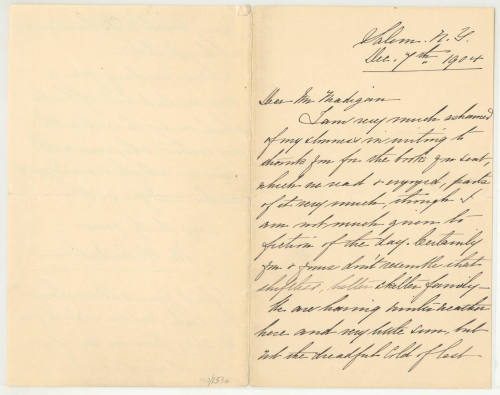 Salem. N. Y.
Dec. 7th 1904
Dear Mr Madigan
I am very much ashamed
of my slowness in writing to
thank you for the book you sent,
which we read & enjoyed, parts
of it very much, though I
am not much given to
fiction of the day. Certainly
you & yours don't resemble that
shiftless, helter skelter family—
We are having winter weather
here and very little sun, but
not the dreadful cold of last